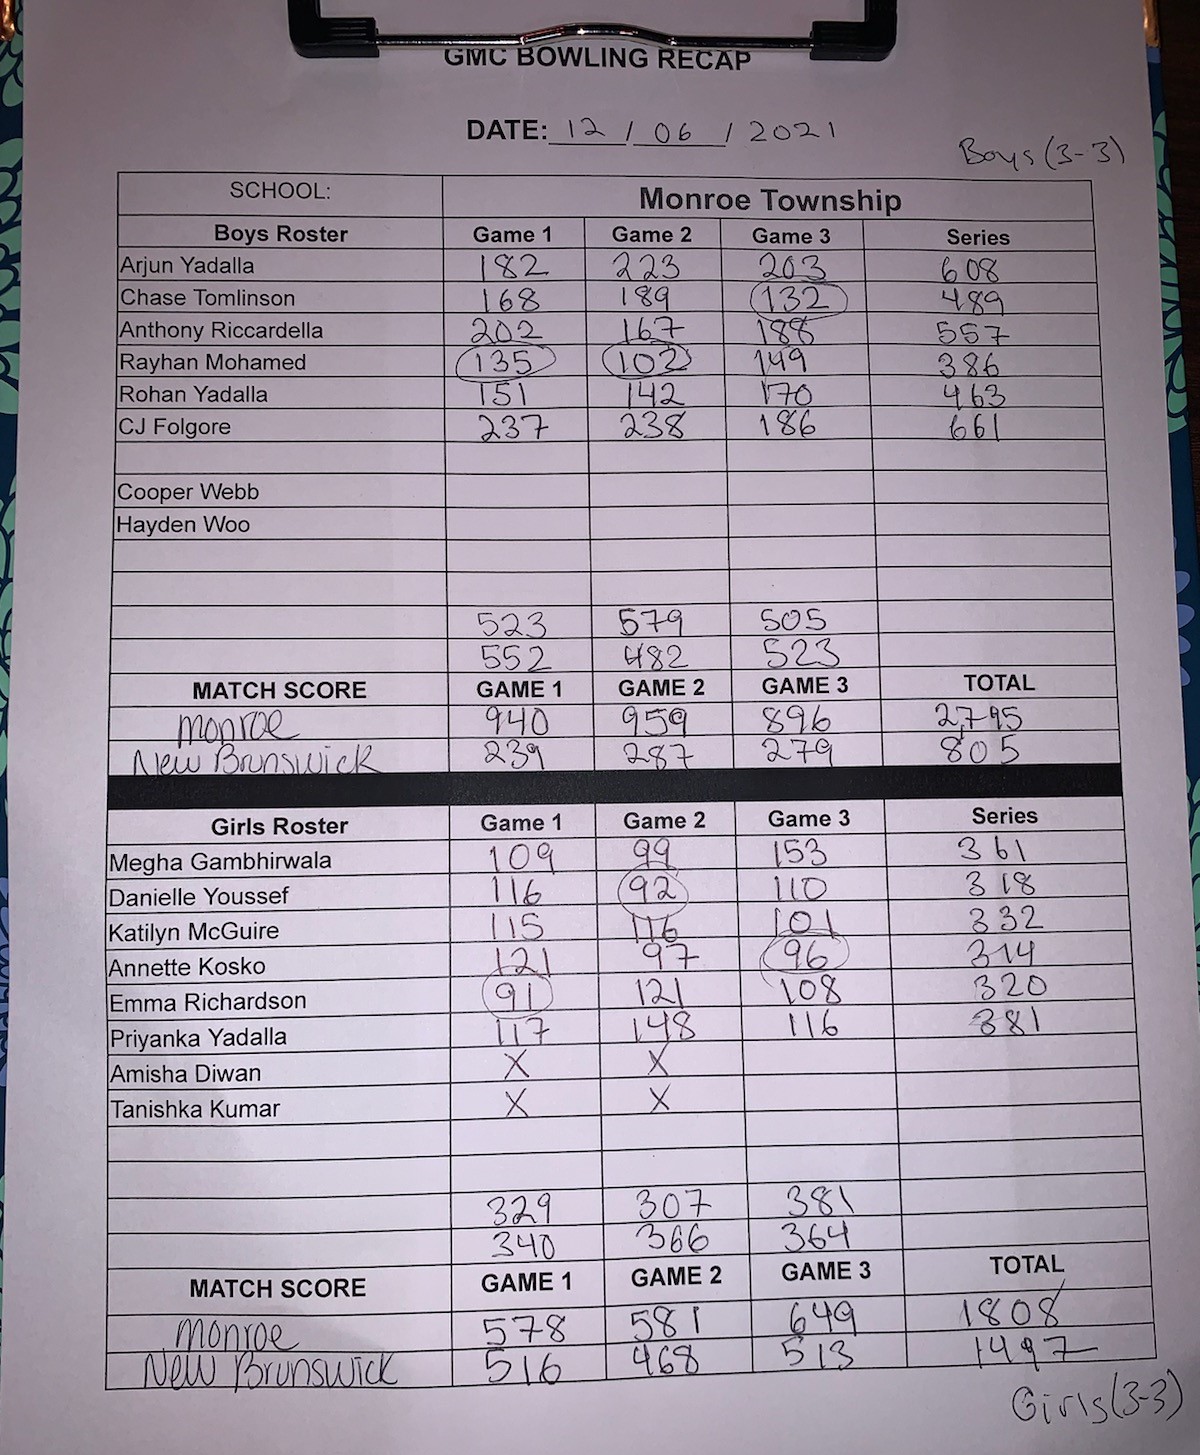 GMC BOWLING RECAP
DATE: 12 / 06 / 2021
Boys (3-3)
SCHOOL: Monroe Township
Boys Roster Game 1 Game 2 Game 3 Series
Arjun Yadalla 182 223 203 608
Chase Tomlinson 168 189 132 489
Anthony Riccardella 202 167 188 557
Rayhan Mohamed 135 102 149 386
Rohan Yadalla 151 142 170 463
CJ Folgore 237 238 186 661
Cooper Webb
Hayden Woo
523 579 505
552 482 523
MATCH SCORE GAME 1 GAME 2 GAME 3 TOTAL
Monroe 940 959 896 2,795
New Brunswick 239 287 279 805
Girls Roster Game 1 Game 2 Game 3 Series
Megha Gambhirwala 109 99 153 361
Danielle Youssef 116 92 110 318
Katilyn McGuire 115 116 101 332
Annette Kosko 121 97 96 314
Emma Richardson 91 121 108 320
Priyanka Yadalla 117 148 116 381
Amisha Diwan X X
Tanishka Kumar X X
329 307 381
340 366 364
MATCH SCORE GAME 1 GAME 2 GAME 3 TOTAL
Monroe 578 581 649 1808
New Brunswick 516 468 513 1497
Girls (3-3)